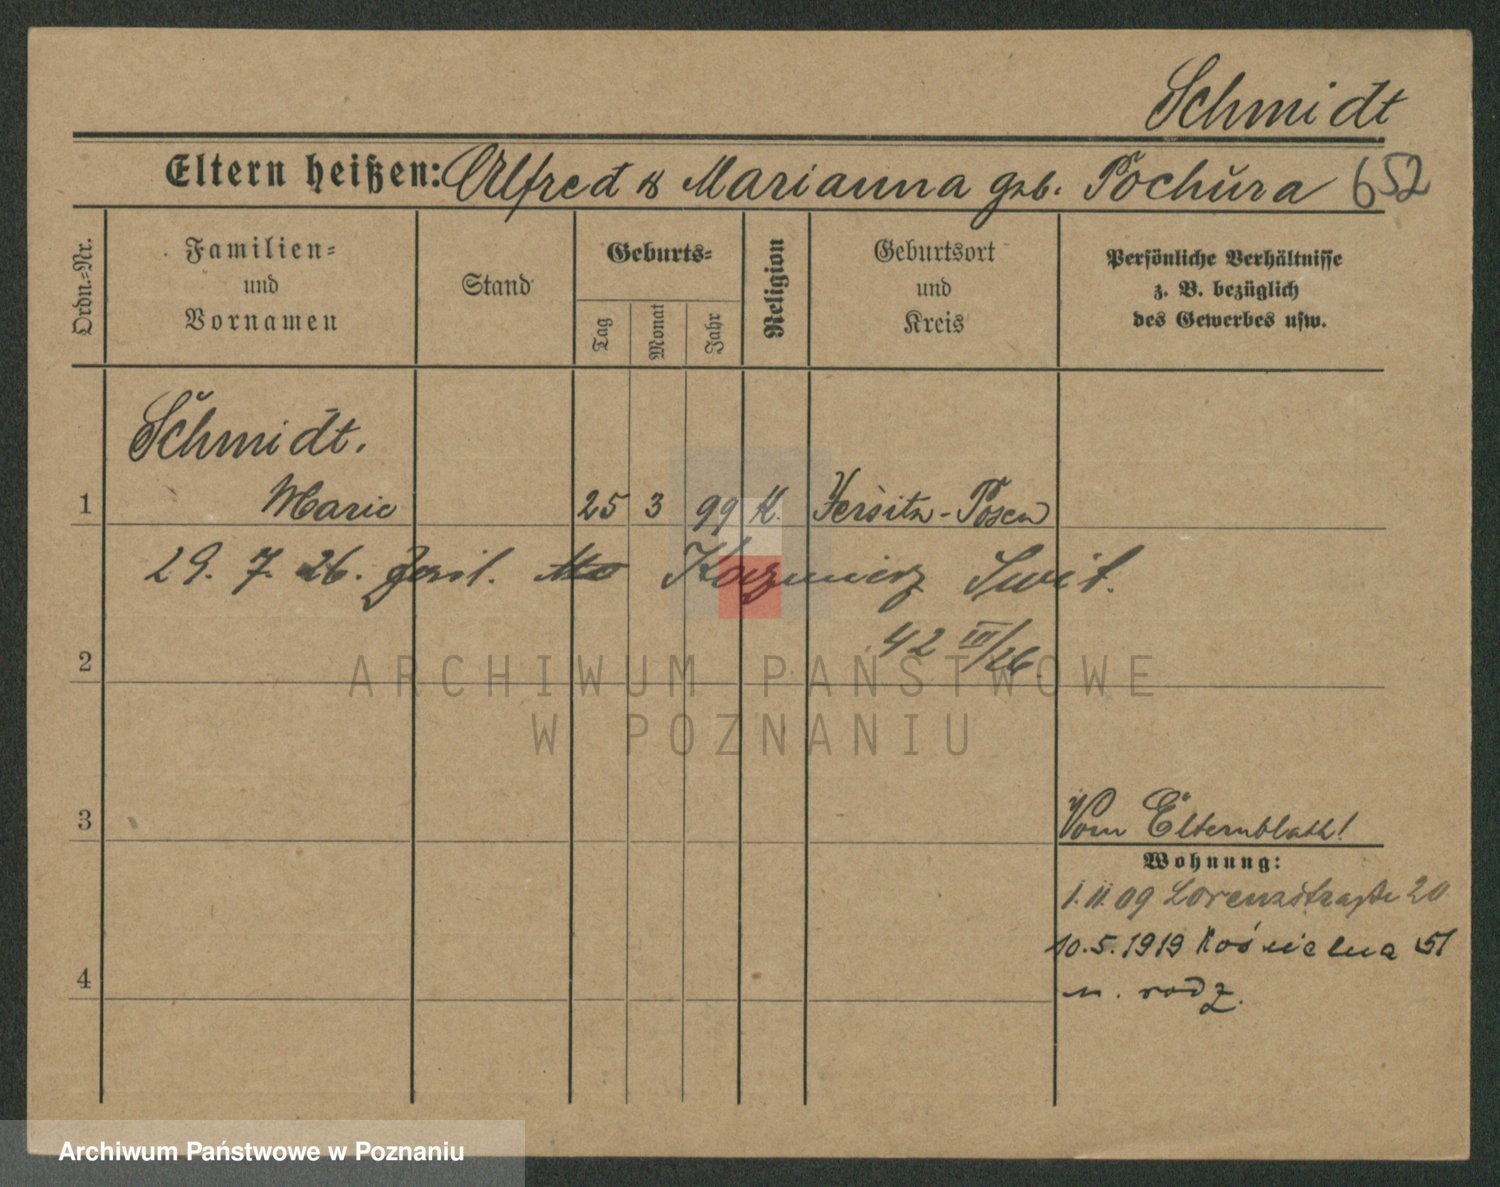 Schmidt
Eltern heißen: Alfred & Marianna geb. Pochura 652
Ordn.-Nr.
Familien-
und
Vornamen
Stand
Geburts-
Tag
Monat
Jahr
Religion
Geburtsort
und
Kreis
Persönliche Verhältnisse
z. B. bezüglich
des Gewerbes usw.
Schmidt.
1 Marie 25 3 99 K. Jersitz-Posen
29. 7. 26. Kazmierz Swit.
42 III/26
2
ARCHIWUM PAŃSTWOWE
W POZNANIU
3 Vom Elternblatt!
Wohnung:
1.11.09 Lorenzstraße 20
10.5.1919 Kościelna 51
4 u. rodz.
Archiwum Państwowe w Poznaniu